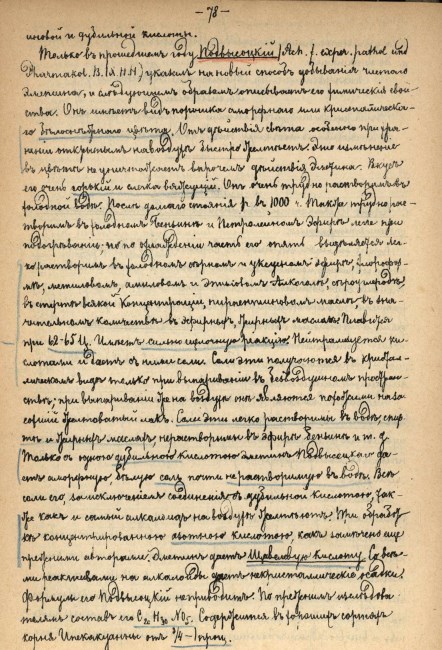 - 78 -
иновой и дубильной кислоты.
Только въ прошедшемъ году Подвысоцкій (Arch. f. exper. pathol und
Pharmakol. B. указалъ на новый способъ добыванія чистаго
Эметина, и слѣдующимъ образомъ описываетъ его химическія свой-
ства. Онъ имѣетъ видъ порошка аморфнаго или кристаллическа-
го бѣлоснѣжнаго цвѣта. Отъ дѣйствія свѣта особенно при хра-
неніи открытымъ на воздухѣ быстро желтѣетъ. Это измѣненіе
въ цвѣтѣ не уничтожаетъ впрочемъ дѣйствія Эметина. Вкусъ
его очень горькій и слегка вяжущій. Онъ очень трудно растворимъ въ
холодной водѣ. Послѣ долгаго стоянія р. въ 1000 ч. Также трудно рас-
творимъ въ холодномъ Бензинѣ и Петролейномъ Эфирѣ легче при
подогрѣваніи; но по охлажденіи часть его опять выдѣляется. Лег-
ко растворимъ въ холодномъ сѣрномъ и уксусномъ эфирѣ, хлорофор-
мѣ, метиловомъ, амиловомъ и этиловомъ Алкоголѣ, сѣроуглеродѣ,
въ спиртѣ всякой концентраціи, терпентинномъ маслѣ, въ зна-
чительномъ количествѣ въ эфирныхъ, жирныхъ маслахъ. Плавится
при 62-65 Ц. Имѣетъ сильно щелочную реакцію. Нейтрализуется ки-
слотами и даетъ съ ними соли. Соли эти получаются въ кристал-
лическомъ видѣ только при выпариваніи въ безвоздушномъ простран-
ствѣ; при выпариваніи же на воздухѣ онѣ являются похожими на за-
сохшій желтоватый лакъ. Соли эти легко растворимы въ водѣ, спир-
тѣ и жирныхъ маслахъ, нерастворимы въ эфирѣ бензинѣ и т. д.
Только съ одною дубильною кислотою Эметинъ Подвысоцкаго да-
етъ аморфную, бѣлую соль почти не растворимую въ водѣ. Всѣ
соли его, за исключеніемъ соединенія съ дубильной кислотою, так-
же какъ и самый алкалоидъ на воздухѣ желтѣютъ. При обработ-
кѣ концентрированною азотною кислотою, какъ замѣчено еще
прежними авторами, Эметинъ даетъ Щавелевую Кислоту. Со всѣ-
ми реактивами на алкалоиды даетъ некристаллическіе осадки.
Формулы его Подвысоцкій не приводитъ. По прежнимъ изслѣдова-
телямъ составъ его C₂₀ H₃₀ NO₅. Содержится въ хорошихъ сортахъ
корня Ипекакуанны отъ 3/4 - 1 проц.